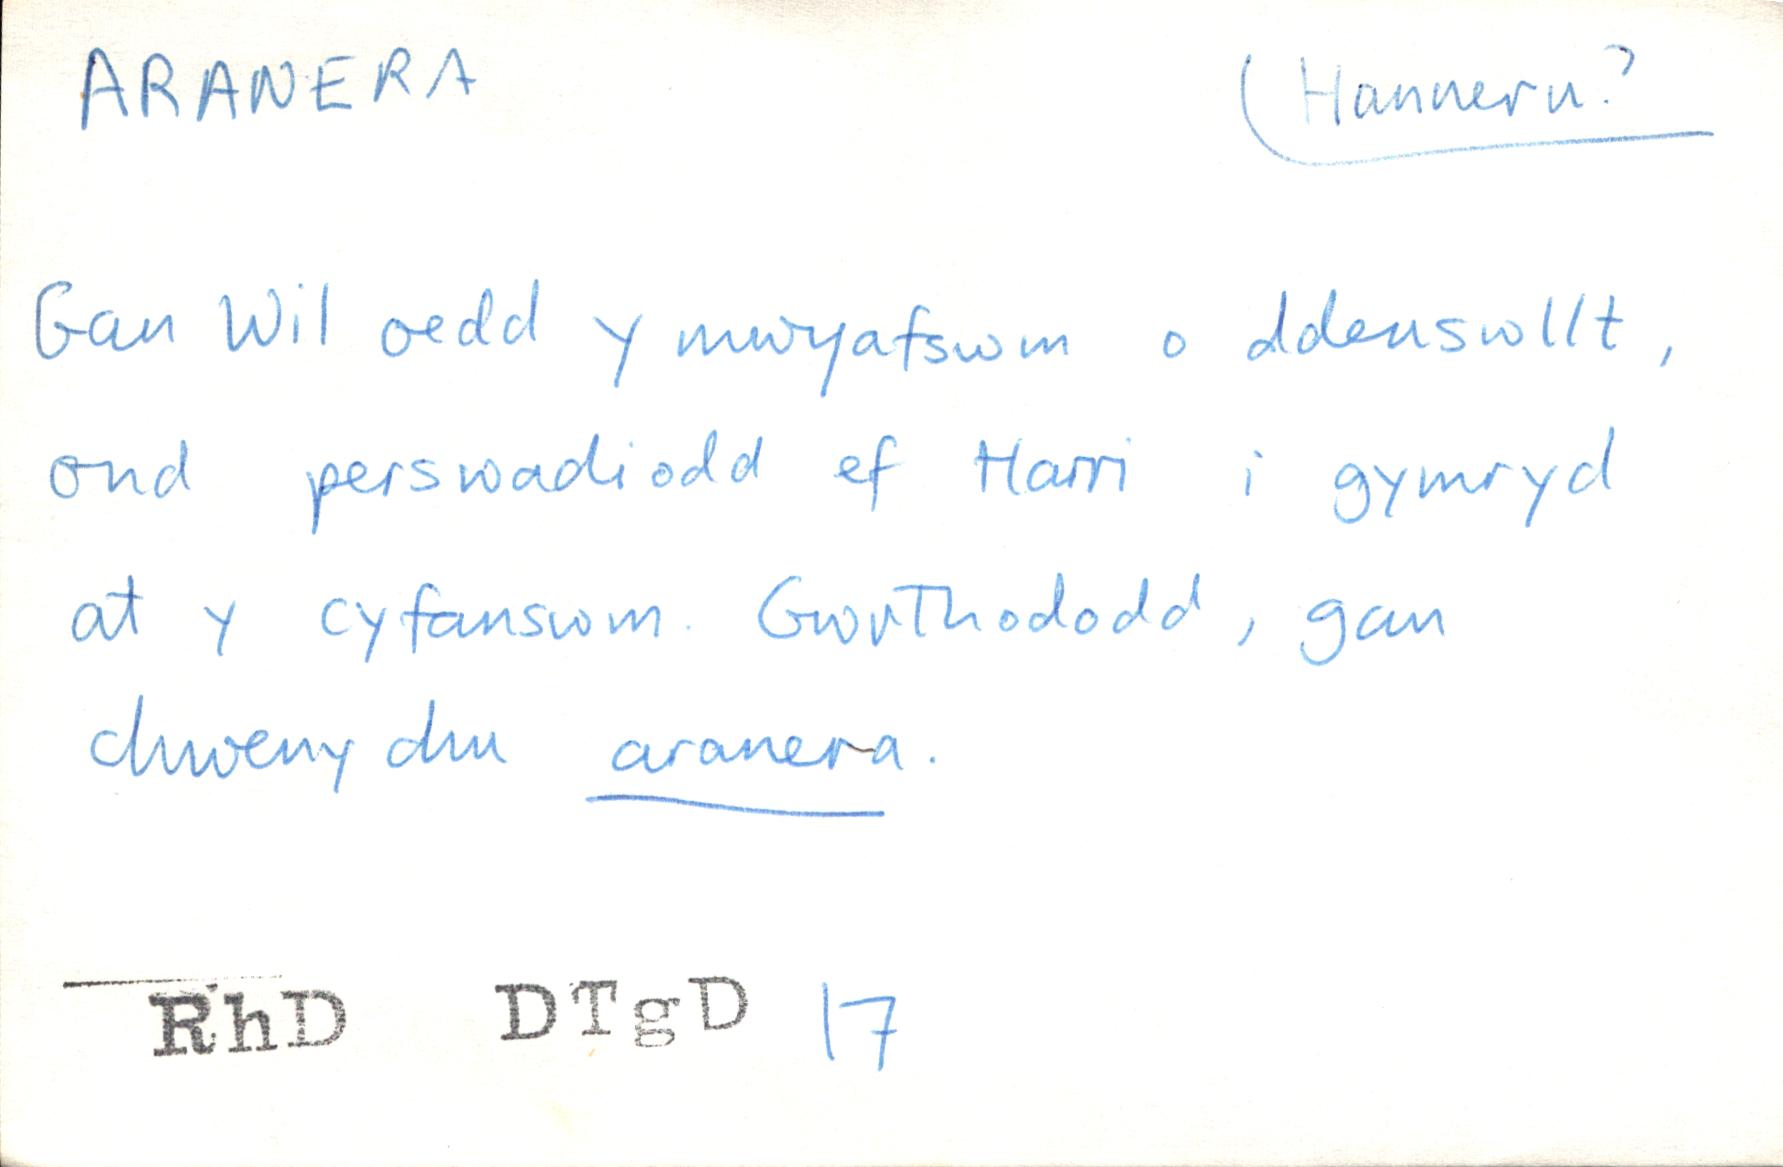 ARANERA (Hanneru?
Gan Wil oedd y mwyafswm o ddeuswllt,
ond perswadiodd ef Harri i gymryd
at y cyfanswm. Gwrthododd, gan
chwenychu aranera.
RhD DTgD 17